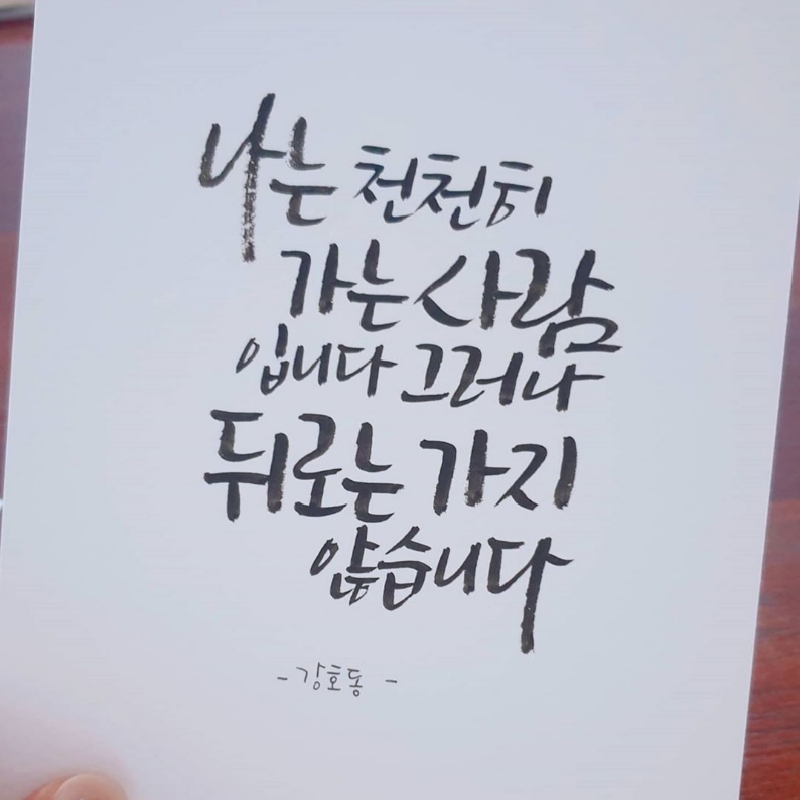 나는 천천히
가는 사람
입니다 그러나
뒤로는 가지
않습니다
- 강호동 -